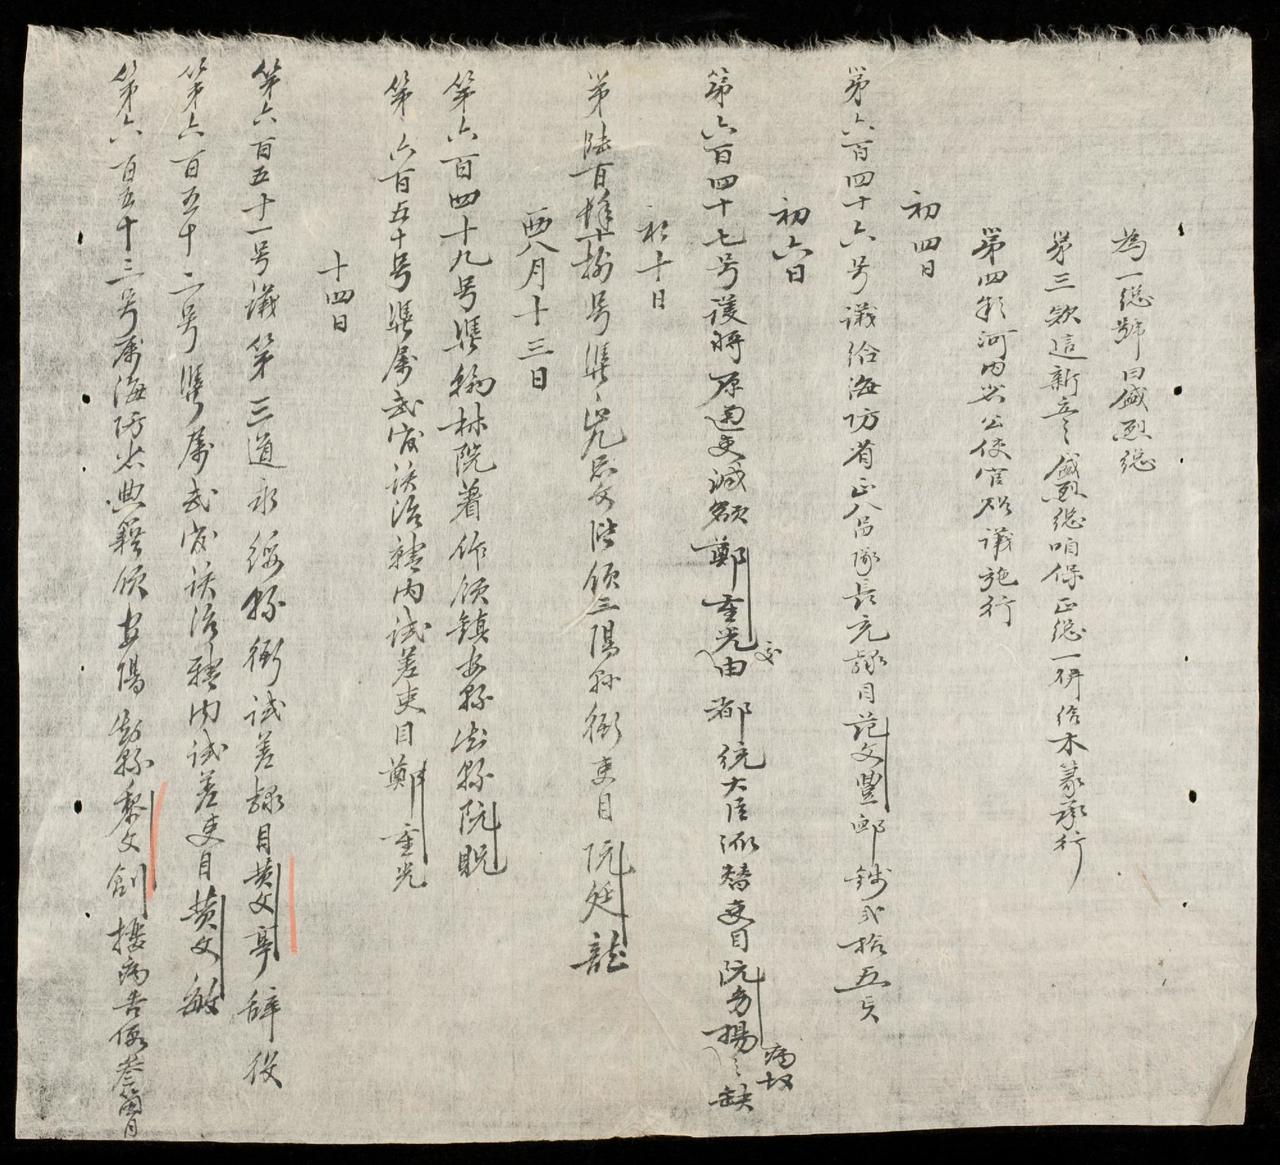 為一总歸曰盛烈总
第三欵這新立之盛烈总咱保正总一併給木篆承行
第四欵河内省公使官飭議施行
初四日
第六百四十六号議給海防省正八品隊長充隸目范文豐郵銭弍拾五元
初六日
第六百四十七号護將原通吏減額鄭重光由都統大臣派替吏目阮旁揚之缺
病故
初十日
第陸百肆十捌号準文領三陽縣衙吏目阮廷龍
西八月十三日
第六百四十九号準翰林院著作領鎮安縣知縣阮
第六百五十号準属武崖該治轄内試差吏目鄭重光
十四日
第六百五十一号議第三道永綏縣衙試差隸目黄文亭辞役
第六百五十二号準属武崖該治轄内試差吏目黄文敏
第六百五十三号属海防省典籍領安陽知縣黎文創摟病告假叁箇月